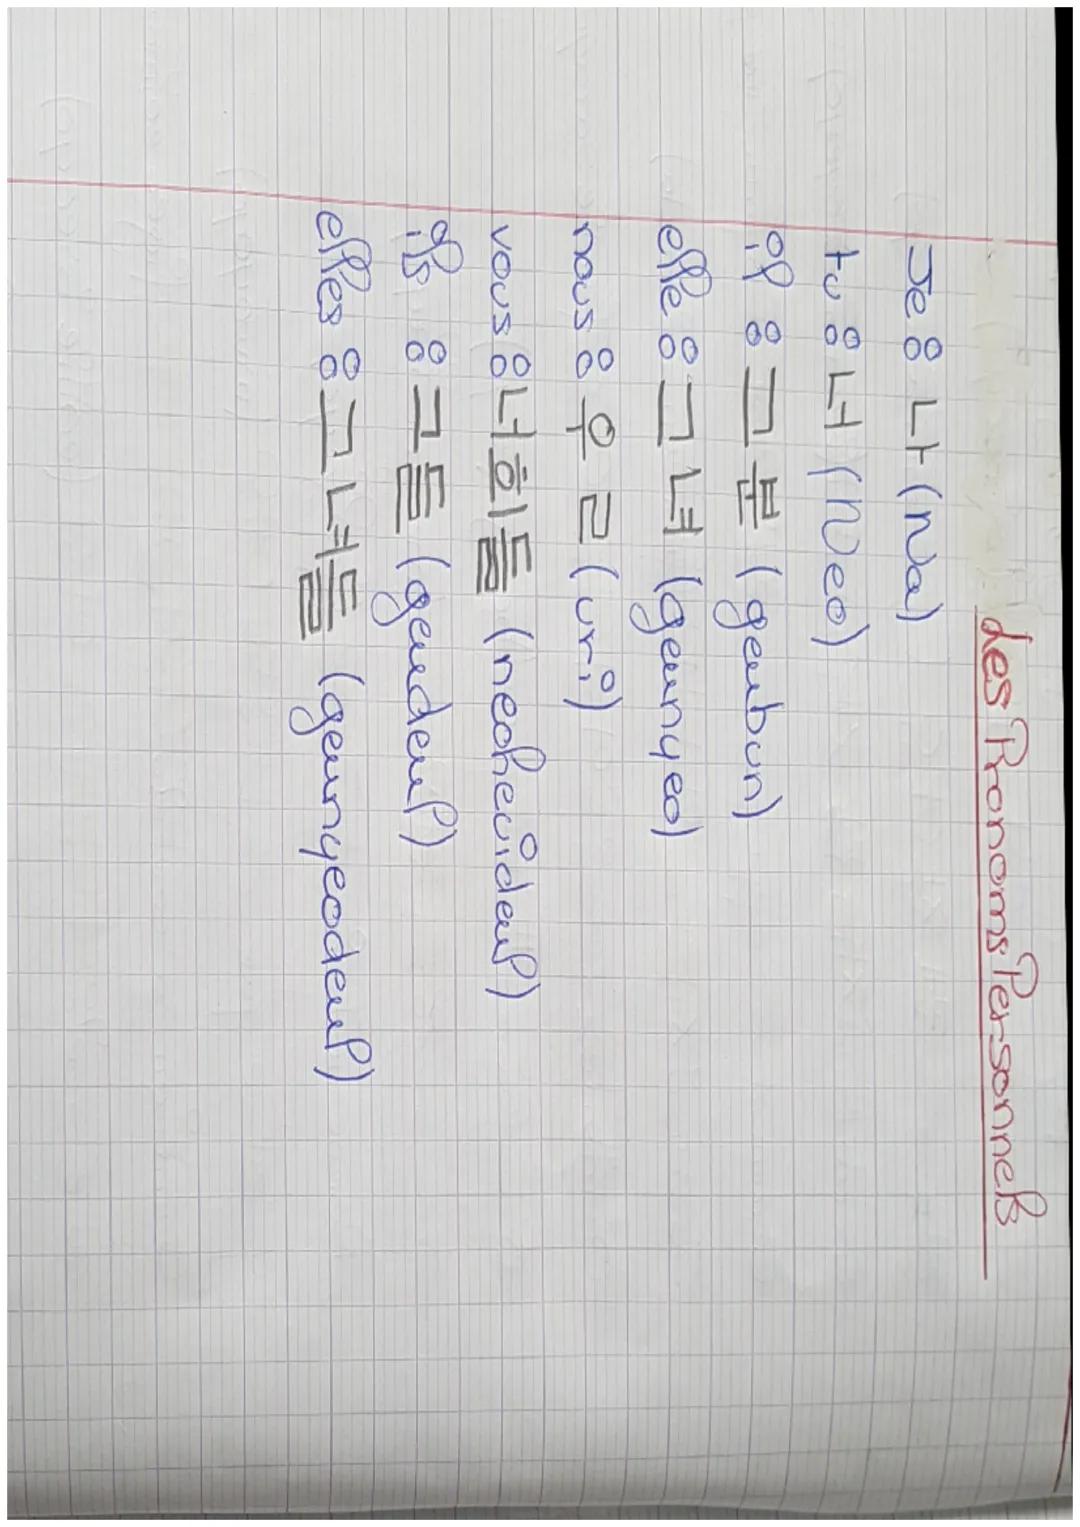 Les Pronoms Personnels
Je : 나 (Na)
tu : 너 (Neo)
il :그분 (geubun)
elle : 그녀 (geunyeo)
nous : 우리 (uri)
vous : 너희들 (neoheuideul)
ils : 그들 (geudeul)
elles : 그녀들 (geunyeodeul)